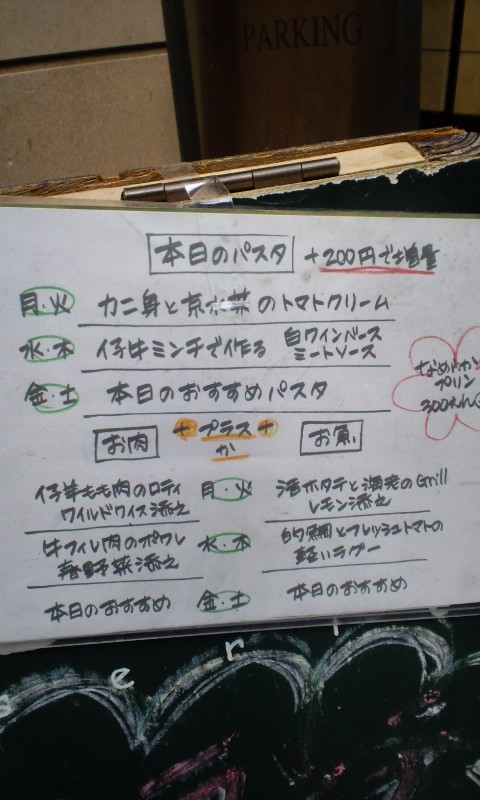 PARKING
本日のパスタ +200円で増量
月・火 カニ身と京水菜のトマトクリーム
水・木 仔牛ミンチで作る 白ワインベース
ミートソース
金・土 本日のおすすめパスタ
なめらか
プリン
300えん
お肉 +プラス+ お魚
か
仔羊もも肉のロティ 月・火 活ホタテと海老のGrill
ワイルドライス添え レモン添え
牛フィレ肉のポワレ 水・木 的鯛とフレッシュトマトの
春野菜添え 軽いラグー
本日のおすすめ 金・土 本日のおすすめ
s e r i e